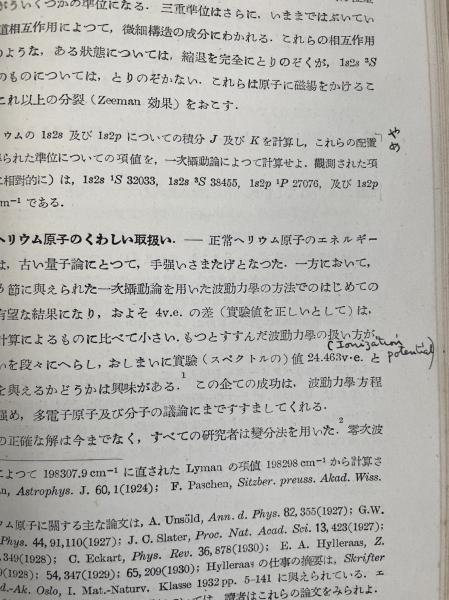 ういくつかの準位になる. 三重準位はさらに, いままではぶいてい
道相互作用によつて, 微細構造の成分にわかれる. これらの相互作用
のような, ある狀態については, 縮退を完全にとりのぞくが, 1s2s ³S
のものについては, とりのぞかない. これらは原子に磁場をかけるこ
これ以上の分裂 (Zeeman 効果) をおこす.
リウムの 1s2s 及び 1s2p についての積分 J 及び K を計算し, これらの配置
られた準位についての項値を, 一次攝動論によつて計算せよ. 觀測された項
に相對的に) は, 1s2s ¹S 32033, 1s2s ³S 38455, 1s2p ¹P 27076, 及び 1s2p
cm⁻¹ である.
やめ
ヘリウム原子のくわしい取扱い. — 正常ヘリウム原子のエネルギー
は, 古い量子論にとつて, 手強いさまたげとなつた. 一方において,
節に與えられた一次攝動論を用いた波動力學の方法でのはじめての
有望な結果になり, およそ 4v.e. の差 (實驗値を正しいとして) は,
計算によるものに比べて小さい. もつとすすんだ波動力學の扱い方が,
(Ionization potential)
いを段々にへらし, おしまいに實驗 (スペクトルの) 値 24.463v·e. と
を與えるかどうかは興味がある.¹ この企ての成功は, 波動力學方程
強め, 多電子原子及び分子の議論にまですすましてくれる.
の正確な解は今までなく, すべての研究者は變分法を用いた.² 零次波
によつて 198307.9 cm⁻¹ に直された Lyman の項値 198298 cm⁻¹ から計算さ
n, Astrophys. J. 60, 1(1924); F. Paschen, Sitzber. preuss. Akad. Wiss.
ウム原子に關する主な論文は, A. Unsöld, Ann. d. Phys. 82, 355(1927); G.W.
Phys. 44, 91, 110(1927); J. C. Slater, Proc. Nat. Acad. Sci. 13, 423(1927);
349(1928); C. Eckart, Phys. Rev. 36, 878(1930); E. A. Hylleraas, Z.
9(1928); 54, 347(1929); 65, 209(1930); Hylleraas の仕事の摘要は, Skrifter
d.-Ak. Oslo, I. Mat.-Naturv. Klasse 1932 pp. 5-141 に與えられている. エ
ては, 讀者はこれらの論文をみられよ.